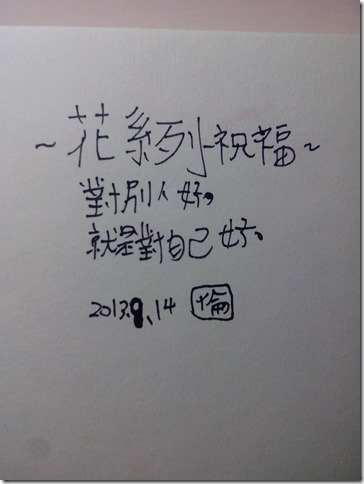 ~花系列-祝福~
對別人好,
就是對自己好。
2013.9.14 倫